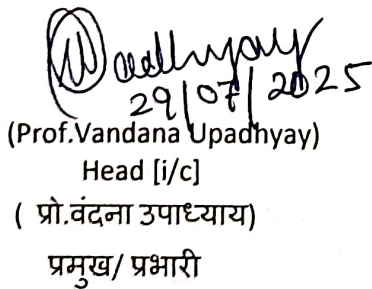 Upadhyay
29/07/2025
(Prof.Vandana Upadhyay)
Head [i/c]
( प्रो.वंदना उपाध्याय)
प्रमुख/ प्रभारी